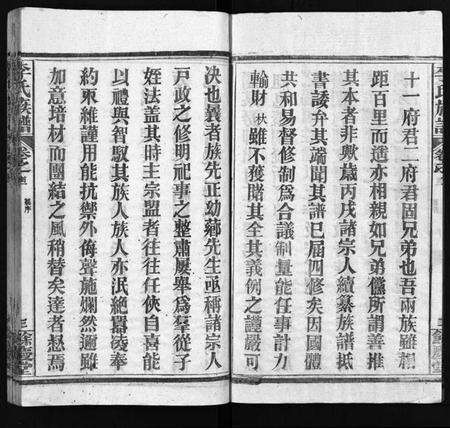 十一府君二府君固兄弟也吾兩族雖觀
距百里而遙亦相親如兄弟儻所謂善推
其本者非歟歲丙戌諸宗人續纂族譜抵
書諉弁其端聞其譜已屆四修矣因國體
共和易督修制為合議制量能任事計力
輸財 雖不獲睹其全其義例之謹嚴可
决也曩者族先正幼蘅先生亟稱諸宗人
戶政之修明祀事之整肅屢舉為羣從子
姪法蓋其時主宗盟者往往任俠自喜能
以禮與智馭其族人族人亦泯絶囂凌奉
約束維謹用能抗禦外侮聲施爛然邇雖
加意培材而團結之風稍替矣達者憖焉
李氏族譜 卷之 序
三 餘慶堂